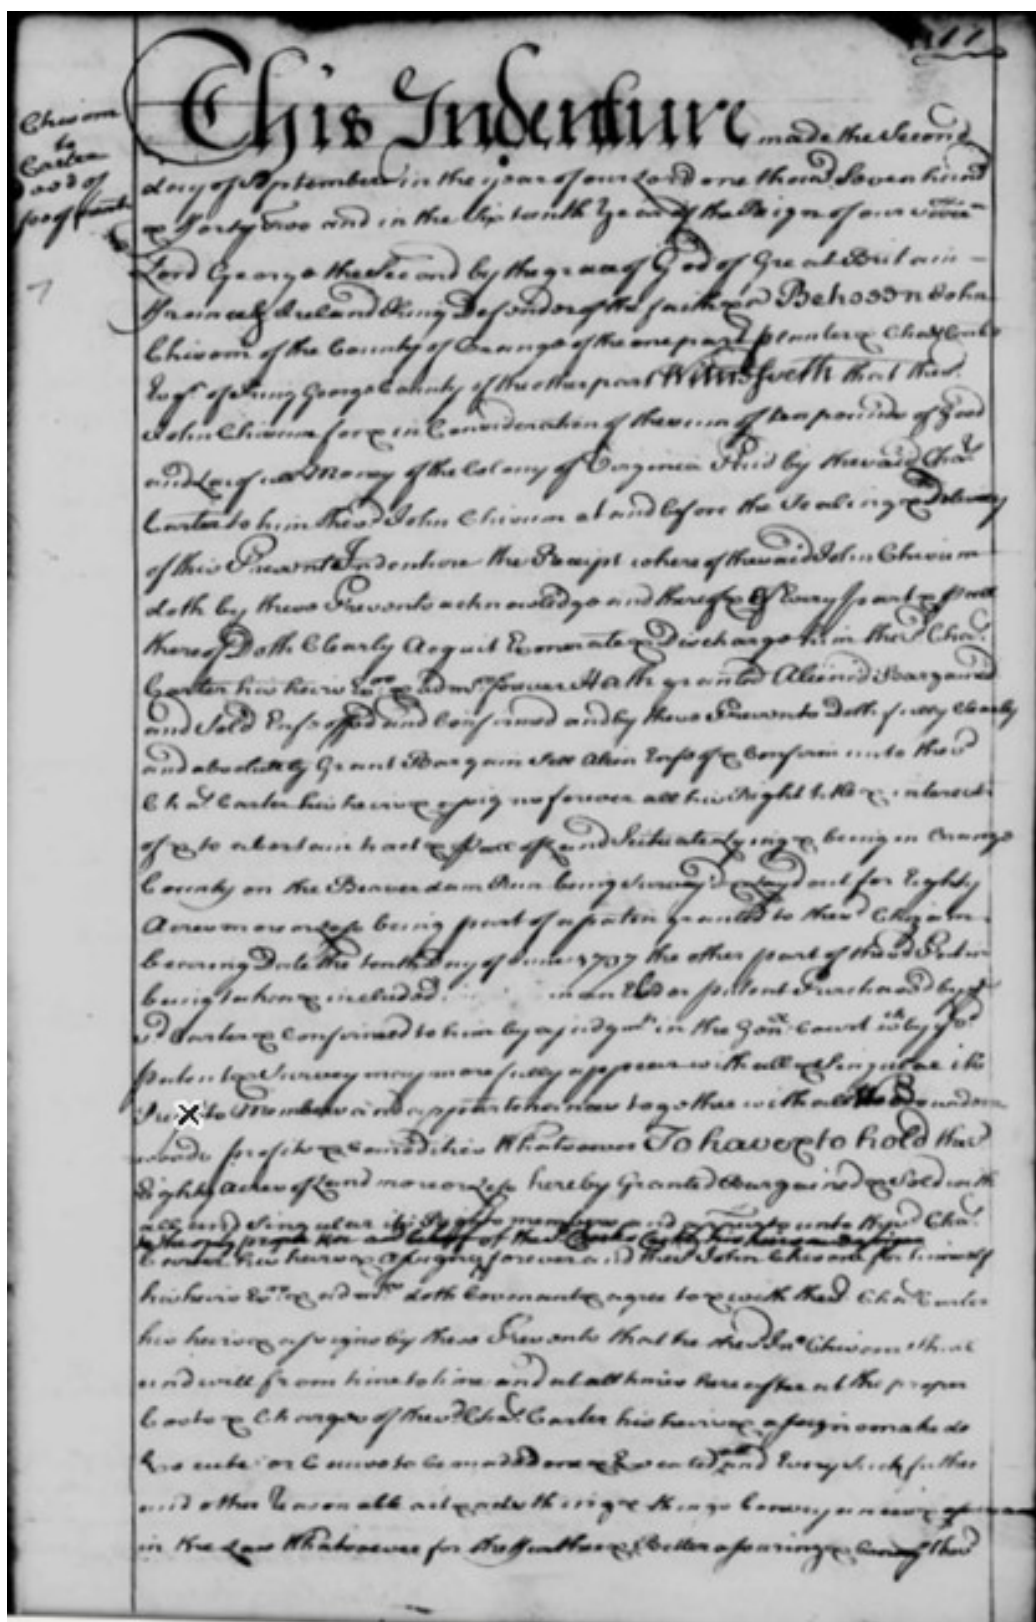 Chisom
to
Carter
deed of
This Indenture made the Second
day of September in the year of our Lord one thousd Seven hund
& Forty Two and in the Sixteenth Year of the Reign of our
Lord George the Second by the grace of God of Great Britain
France & Ireland King Defender of the faith &c Between John
Chisom of the County of Orange of the one part planter & Chas Carter
Esqr of King George County of the other part Witnesseth that the sd
John Chisum for & in Consideration of the sum of ten pounds of Good
and Lawfull Money of the Colony of Virginia Paid by the said Chas
Carter to him the sd John Chisum at and before the Sealing & Delivery
of this Present Indenture the Receipt whereof the said John Chisum
doth by these Presents acknowledge and thereof & of Every part &
thereof Doth Clearly Acquit Exonerate & Discharge him the sd Chas
Carter his heirs Exrs & admrs forever Hath granted Aliened Bargained
and Sold Enfeoffed and Confirmed and by these Presents Doth fully Clearly
and absolutely Grant Bargain Sell Alien Enfeoff & Confirm unto the sd
Chas Carter his heirs & assigns forever all his Right title & interest
of & to a Certain tract & of Land Situate Lying & being in Orange
County on the Beaverdam Run being Survey'd & Layd out for Eighty
Acres more or Less being part of a paten granted to the sd Chisom
bearing Date the tenth Day of June 1737 the other part of the sd Paten
being taken & included in an Elder patent Purchased by ye
sd Carter & Confirmed to him by a judgmt in the Gen Court as by ye sd
paten & Survey may more fully appear with all & Singular its
Members and appurtenances together with all
woods profits & Comodities Whatsoever To have & to hold the sd
Eighty Acres of Land more or Less hereby Granted Bargained & Sold with
all and Singular its Rights members and unto the sd Chas
Carter his heirs & assigns forever and the sd John Chisom for himself
his heirs Exrs & admrs doth Covenant & agree to & with the sd Chas Carter
his heirs & assigns by these Presents that he the sd Jno Chisom shall
and will from time to time and at all times hereafter at the proper
Costs & Charges of the sd Chas Carter his heirs & assigns make do
Execute or Cause to be made done & Executed all and Every Such further
and other Reasonable act & acts thing & things Conveyances &
in the Law Whatsoever for the further & Better assuring & the sd